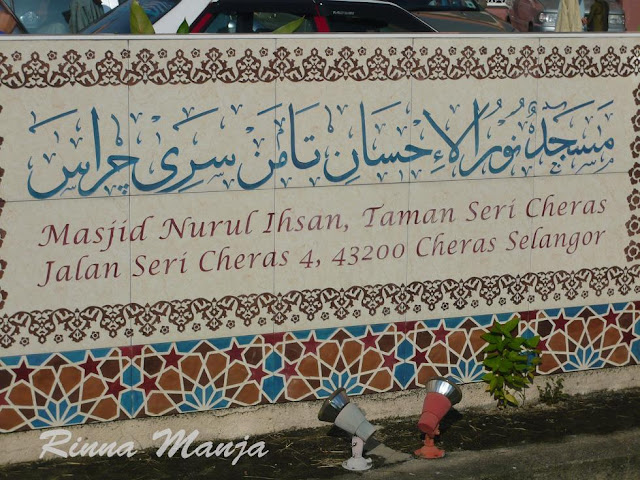 مسجد نور الإحسان تامن سري چراس
Masjid Nurul Ihsan, Taman Seri Cheras
Jalan Seri Cheras 4, 43200 Cheras Selangor
Rinna Manja